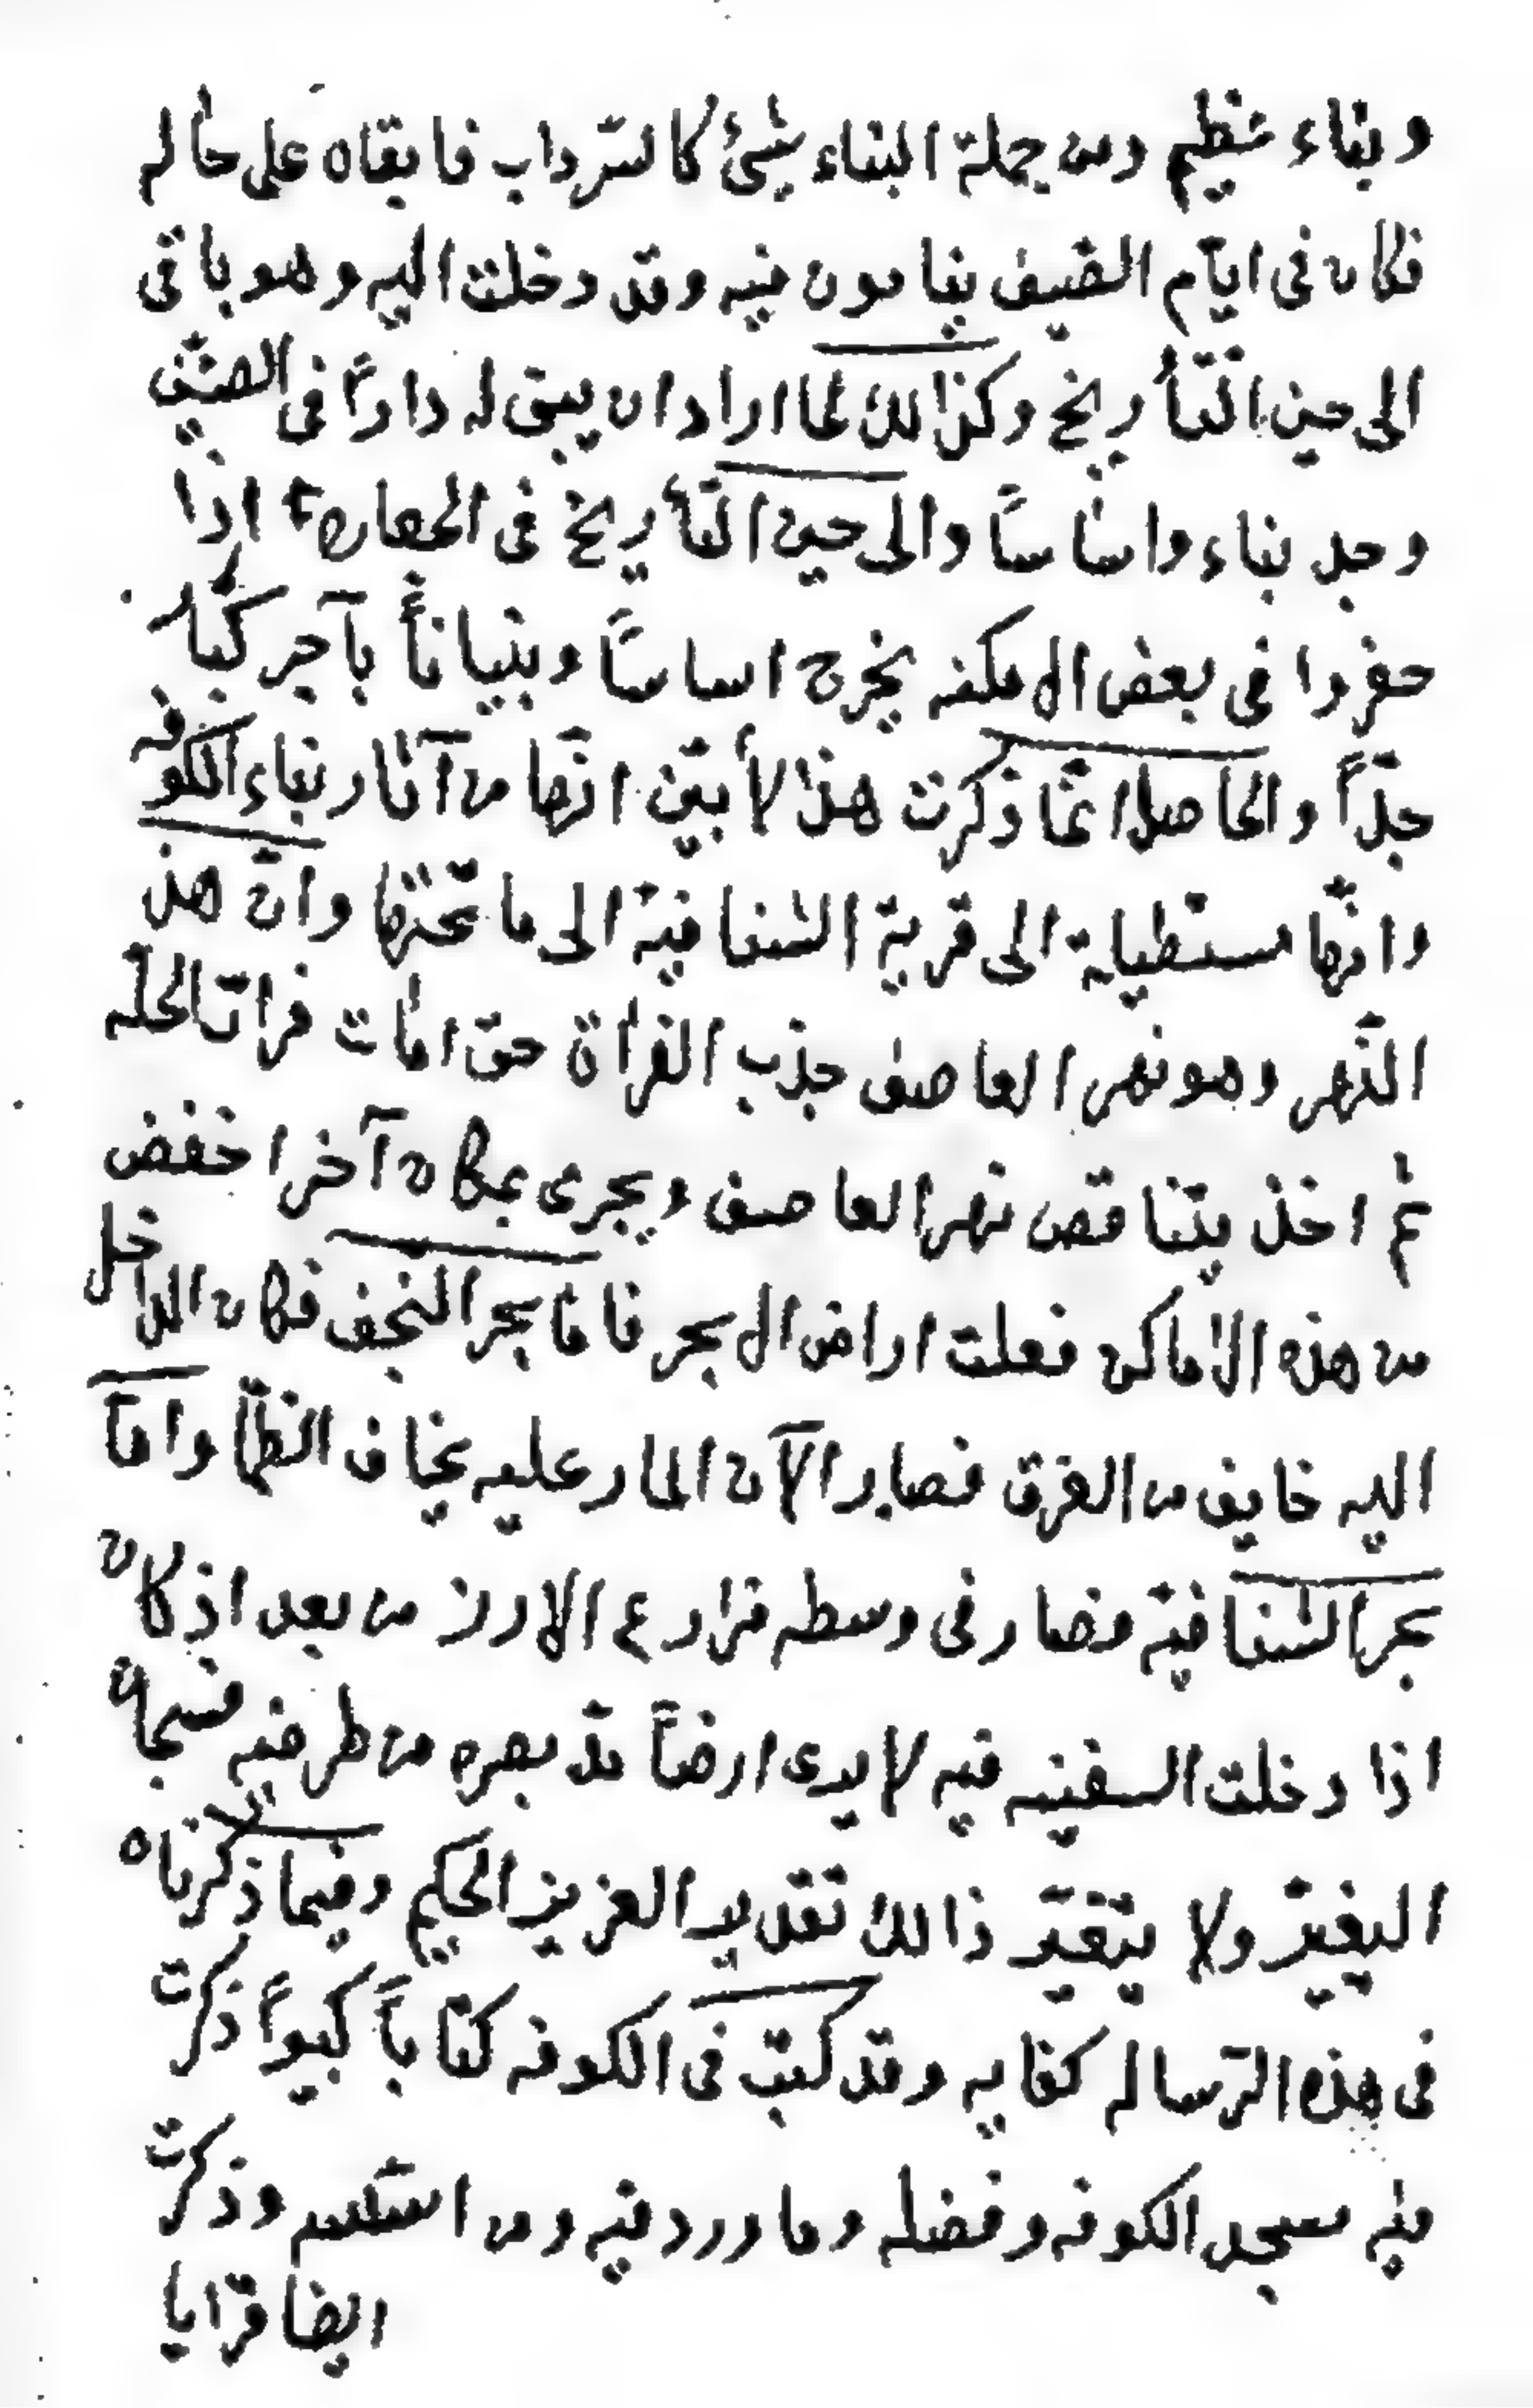 وبناء عظيم ومن جملة البناء شئ كالسّرداب فابقاه على حاله
فكان فى ايّام الصّيف ينامون فيه وقد دخلت اليه وهو باقى
الى حين التّأريخ وكذالك لما اراد ان يبنى له داراً فى الصيّف
وجد بناء واساساً والى حين التّأريخ فى الجعاره اذا
حفروا فى بعض الامكنه يخرج اساساً وبنياناً بآجر كبّار
جدّاً والحاصل انّما ذكرت هذا لأبيّن انّها من آثار بناء الكوفه
وانّها مستطيلة الى قرية الشنافية الى ما تحتها وانّ هذ
النّهر وهو نهر العاصف جذب الفراة حتى امات فرات الحلّه
ثم اخذ يتناقص نهر العاصف ويجرى بمكان آخر اخفض
من هذه الاماكن فعلت اراضى الابحر فامّا بحر النّجف فكان الداخل
اليه خايف من الغرق فصار الآن المار عليه يخاف الظمأ وامّا
بحر الشنافية فصار فى وسطه مزارع الارز من بعد اذ كان
اذا دخلت السفينه فيه لا يرى ارضاً مدّ بصره من طرفيه فسبحان
اليغيّر ولا يتغيّر ذالك تقدير العزيز الحكيم وفيما ذكرناه
فى هذه الرّساله كفايه وقد كتبت فى الكوفه كتاباً كبيراً ذكرت
فيه مسجد الكوفه وفضله وما ورد فيه ومن اسّسه وذكرت
ايضا قرايا